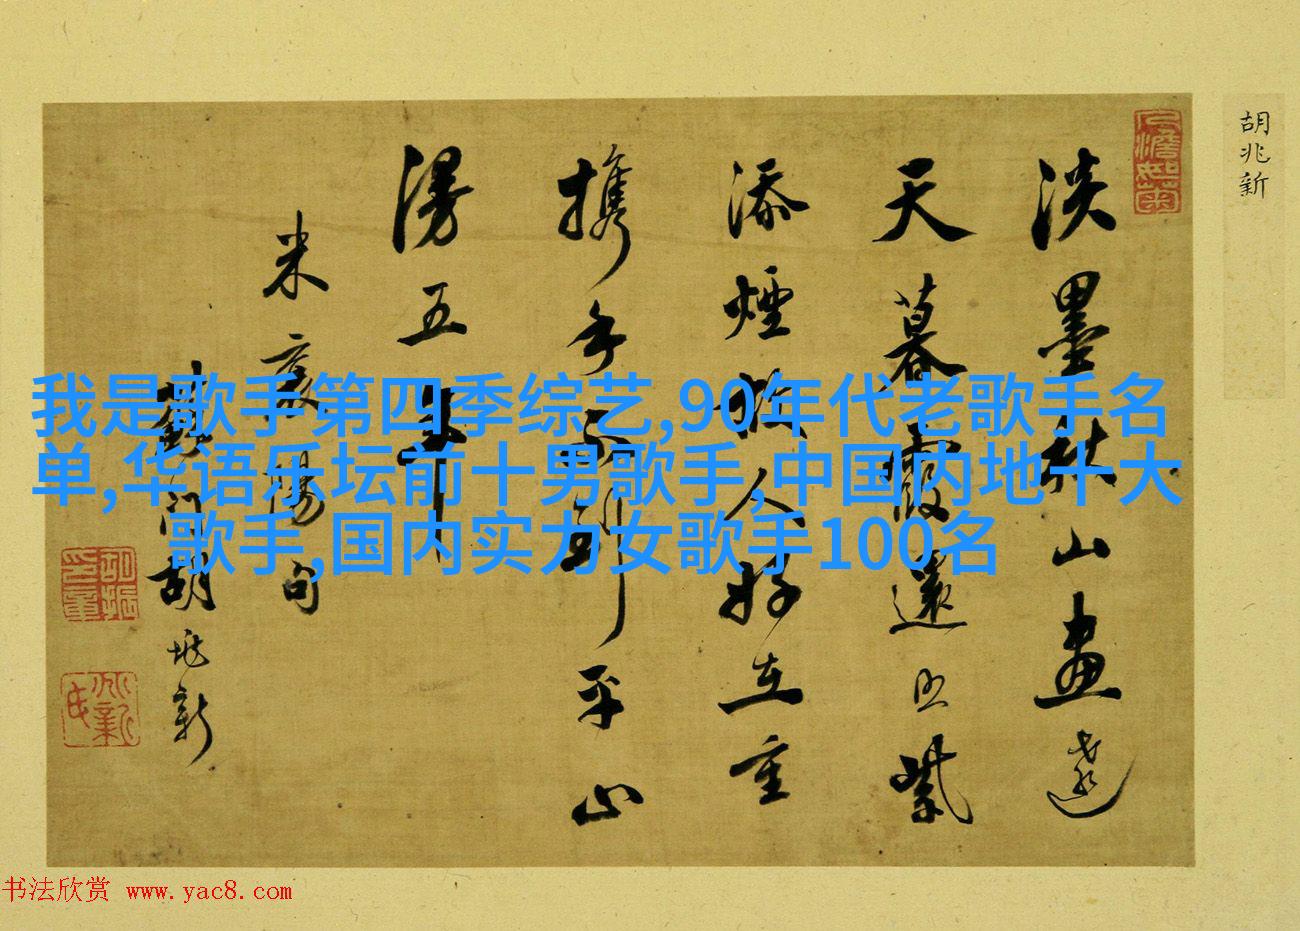 胡兆新
淡墨秋山畫遠
天暮霞還照紫
添煙故人好在重
携手不到平山
漫五年
米襄陽句
門胡兆新
我是歌手第四季综艺,90年代老歌手名
单,华语乐坛前十男歌手,中国内地十大
歌手,国内实力女歌手100名
书法欣赏 www.yac8.com